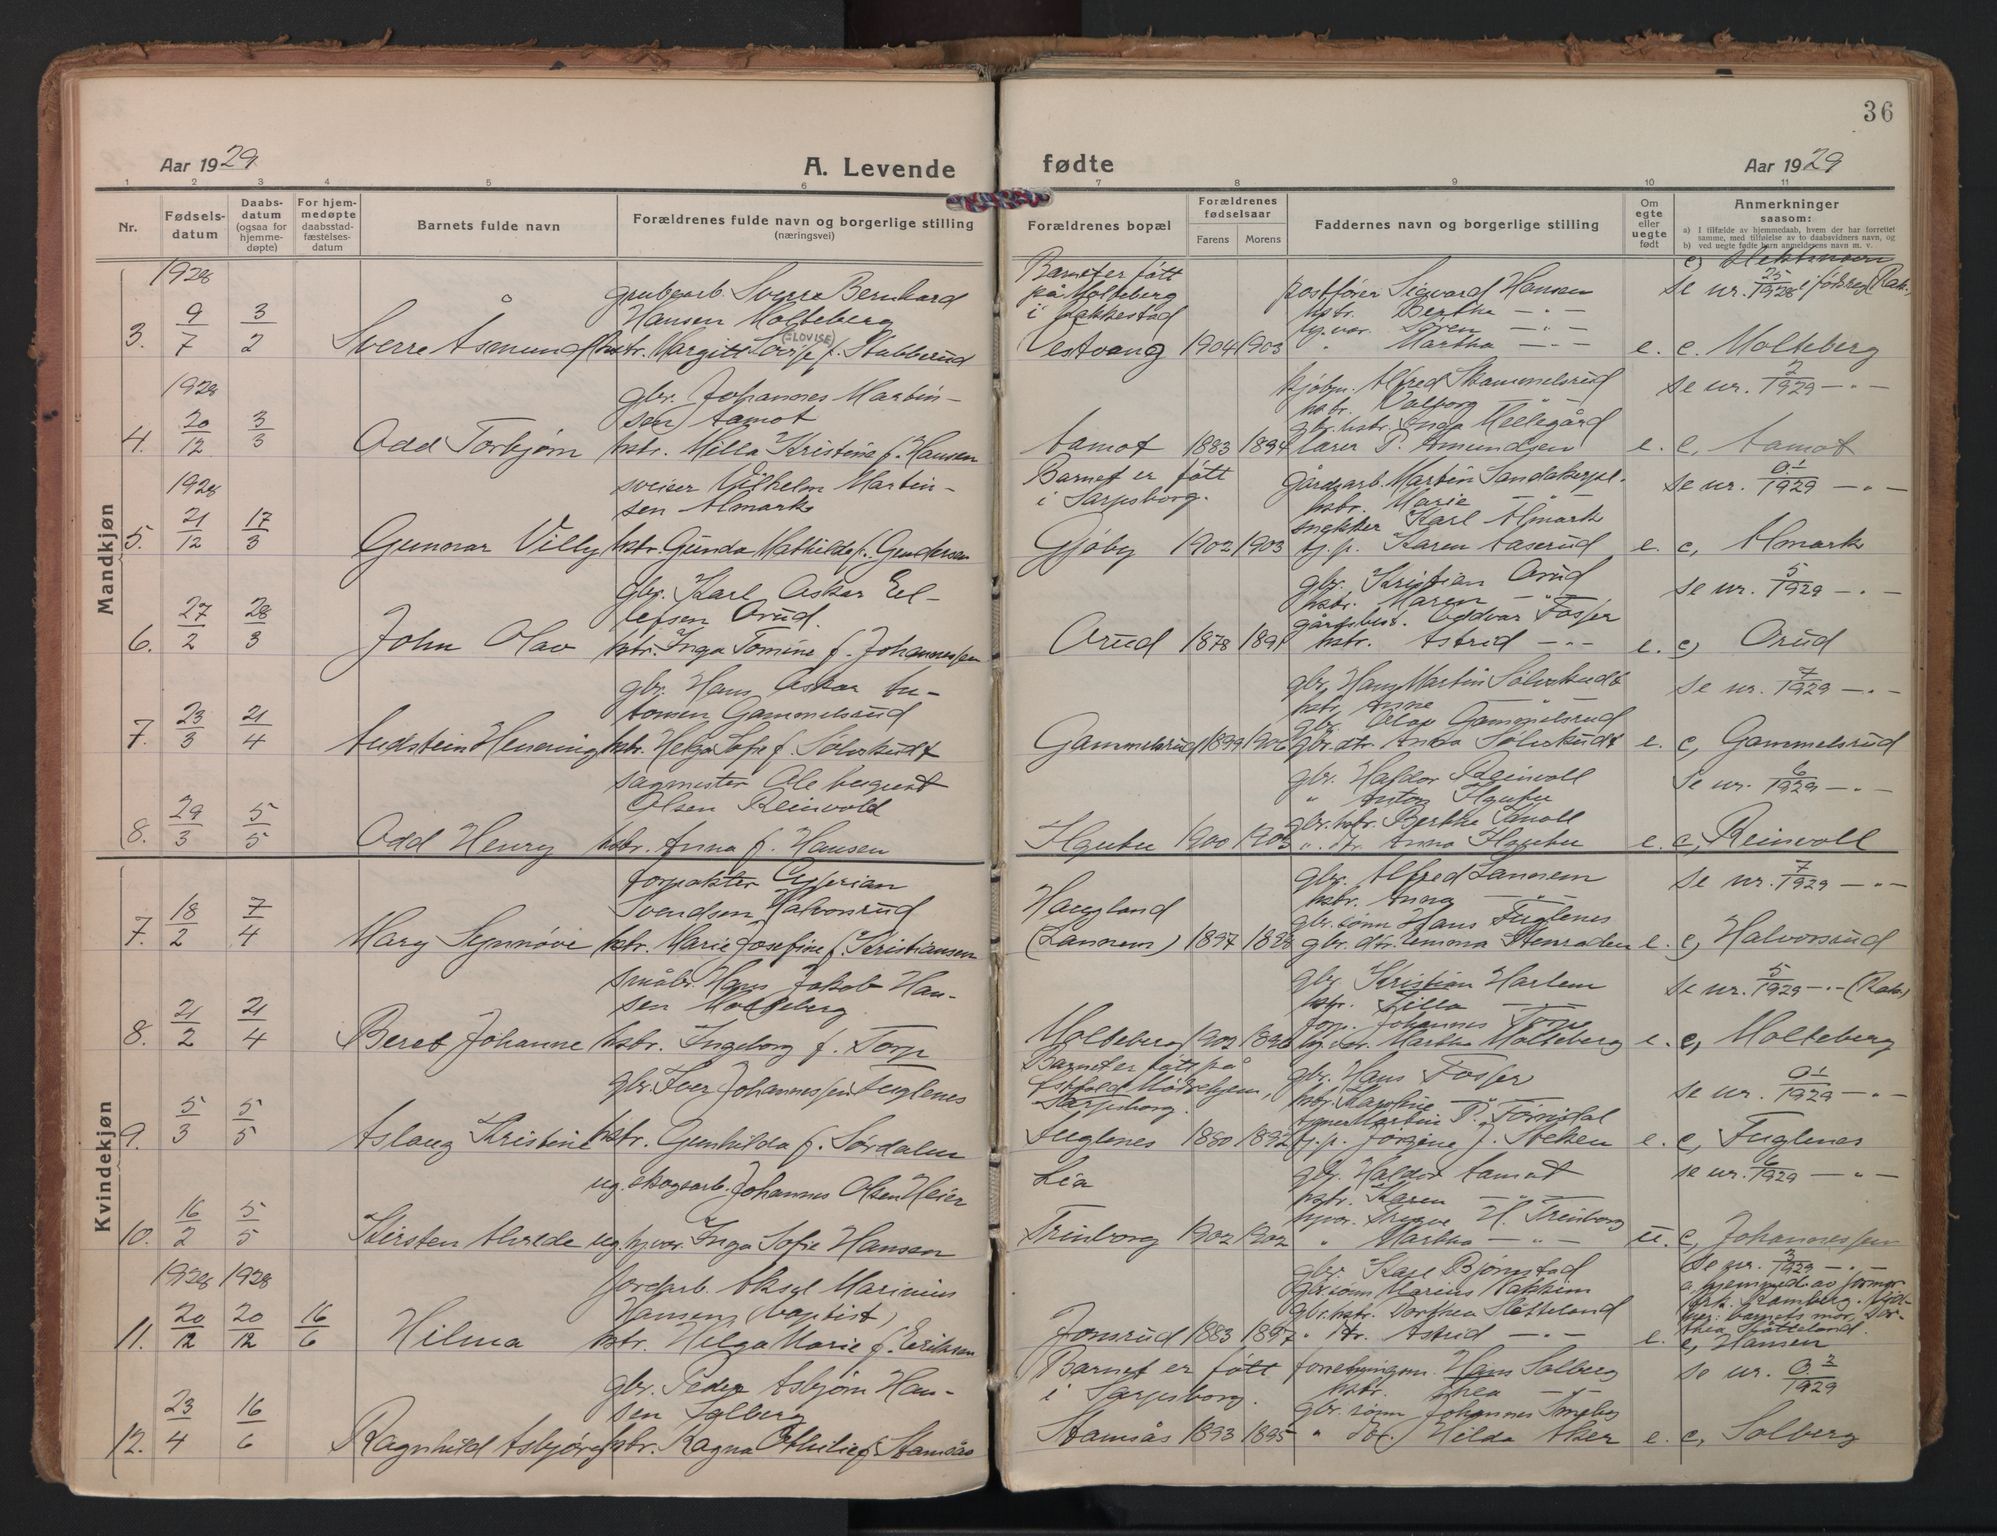 36
Aar 1929
A. Levende
fødte
Aar 1929
1 2 3 4 5 6 7 8 9 10 11
Nr.
Fødselsdatum
Daabsdatum (ogsaa for hjemmedøpte)
For hjemmedøpte daabsstadfæstelsesdatum
Barnets fulde navn
Forældrenes fulde navn og borgerlige stilling (næringsvei)
Forældrenes bopæl
Forældrenes fødselsaar
Farens Morens
Faddernes navn og borgerlige stilling
Om egte eller uegte født
Anmerkninger saasom:
a) I tilfælde av hjemmedaab, hvem der har forrettet samme, med tilføielse av to daabsvidners navn, og
b) ved uegte fødte barn anmelderens navn m. v.
Mandkjøn
1928
3. 9/7 3/2 Sverre Åsmund
grubearb. Sverre Bernhard
Hansen Molteberg
(LOVISE)
hstr. Margitt Lovise f. Stubberud
Barnet er født
på Molteberg
i Rakkestad
Vestvang 1904 1903
postfører Sigvard Hansen
hstr. Bertha — " —
Søren — " —
" Martha — " —
e.
Se nr. 25/1928 i fødreg. (Rak.)
c. Molteberg
1928
4. 20/12 3/3 Odd Torbjørn
gbr. Johannes Martin-
sen Aamot
hstr. Milla Kristine f. Hansen
Aamot 1883 1894
kjøbm. Alfred Skammelsrud
hstr. Valborg — " —
gbr. hstr. Inga Mellegård
lærer P. Amundsen
e.
Se nr. 2/1929 — " —
c, Aamot
1928
5. 21/12 17/3 Gunnar Villy
sveiser Vilhelm Martin-
sen Almark
hstr. Gunda Mathilde f. Gundersen
Barnet er født
i Sarpsborg.
Gjøby 1902 1903
gårdsarb. Martin Sandaker
hstr. Marie — " —
snekker Karl Almark
tj.p. Karen Aaserud
e.
Se nr. 91/1929 — " —
c, Almark
6. 27/2 28/3 John Olav
gbr. Karl Oskar El-
lefsen Orud.
hstr. Inga Tomine f. Johannessen
Orud 1878 1891
gbr. Kristian Orud
hstr. Maren — " —
gårdsbest. Oddvar Fosser
hstr. Astrid — " —
e.
Se nr. 5/1929 — " —
c, Orud
7. 23/3 21/4 Audstein Henning
gbr. Hans Oskar An-
tonsen Gammelsrud
hstr. Helga Sofie f. Sølvskudt
Gammelsrud 1899 1906
gbr. Hans Martin Sølvskudt
hstr. Anne
gbr. Olav Gammelsrud
gbr. dtr. Anna Sølvskudt
e.
Se nr. 7/1929 — " —
c, Gammelsrud
8. 29/3 5/5 Odd Henry
sagmester Ole August
Olsen Reinvold
hstr. Anna f. Hansen
1900 1903
gbr. Haldor Reinvoll
" Anton
gbr. hstr. Berthe
". dtr. Anna
e.
Se nr. 6/1929 — " —
c, Reinvoll
Kvindekjøn
7. 18/2 7/4 Mary Synnøve
forpakter Cyprian
Svendsen Halvorsrud
hstr. Marie Josefine f. Kristiansen
Haugland
(Lannem) 1897 1898
gbr. Alfred Lannem
hstr. Anna — " —
gbr. sønn Hans Fuglenes
gbr. dtr. Emma Stenroden
e.
Se nr. 7/1929 — " —
c, Halvorsrud
8. 21/2 21/4 Beret Johanne
småbr. Hans Jakob Han-
sen Molteberg
hstr. Ingeborg f. Torp
Molteberg 1902 1896
gbr. Kristian Harlem
hstr. Lilla — " —
forp. Johannes Torp
Martha Molteberg
e.
Se nr. 5/1929 — " — (Rak.)
c, Molteberg
9. 5/3 5/5 Aslaug Kristine
gbr. Iver Johannessen Fuglenes
hstr. Gunhilda f. Sørdalen
Barnet er født på
Østfold Mødrehjem,
Sarpsborg.
Fuglenes 1880 1892
gbr. Hans Fosser
hstr. Karoline — " —
Martin P.
tj.p. Jørgine J.
e.
Se nr. 91/1929 — " —
c, Fuglenes
10. 16/2 5/5 Kirsten Alvilde
ug. skogsarb. Johannes Olsen Heier
ug. hj.vær. Inga Sofie Hansen
Lia
Trinborg 1902 1902
gbr. Haldor Aamot
hstr. Karen — " —
hjvær. Trygve H. Trinborg
" Martha — " —
u.
Se nr. 6/1929 — " —
c, Johannessen
1928 1928
11. 20/12 20/12 16/6 Hilma
jordarb. Aksel Marinius
Hansen (baptist)
hstr. Helga Marie f. Eriksen
Jonsrud 1883 1897
gbr. Karl Bjørnstad
gbr. sønn Marius Bakkim
gbr. hstr. Dorthea Slätteland
" dtr. Astrid — " —
e.
Se nr. 3/1929 — " —
a, hjemmed. av jormor
frk. Ramberg. Vid-
ner: barnets mor, Dor-
thea Slätteland.
c, Hansen
12. 23/4 16/6 Ragnhild Asbjørg
gbr. Peder Asbjørn Han-
sen Solberg
hstr. Ragna Othilie f. Stamsås
Barnet er født
i Sarpsborg.
Stamsås 1893 1895
forretningsm. Hans Solberg
hstr. Thea — " —
gbr. sønn Johannes
" dtr. Hilda Aker
e.
Se nr. 93/1929
c, Solberg